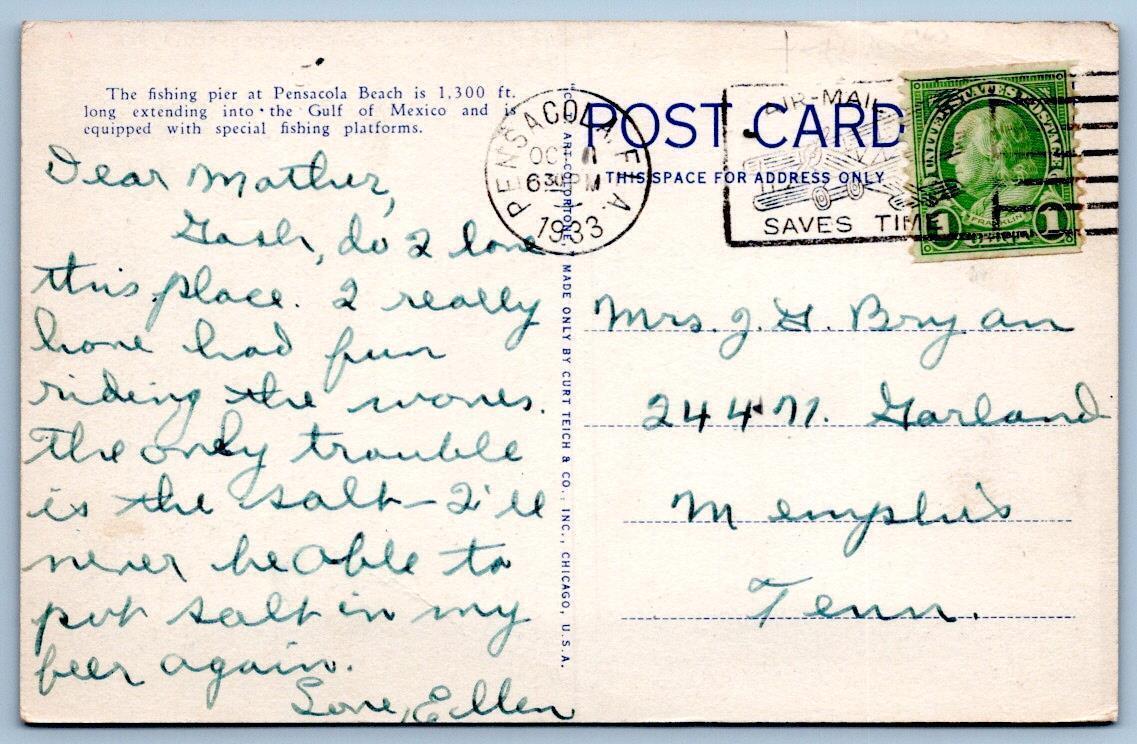 The fishing pier at Pensacola Beach is 1,300 ft.
long extending into the Gulf of Mexico and is
equipped with special fishing platforms.
Dear Mother,
Gosh, do I love
this place. I really
have had fun
riding the waves.
The only trouble
is the salt - I'll
never be able to
put salt in my
beer again.
Love, Ellen
C. T. ART-COLORTONE
MADE ONLY BY CURT TEICH & CO., INC., CHICAGO, U.S.A.
PENSACOLA, FLA.
OCT
630 PM
1933
POST CARD
THIS SPACE FOR ADDRESS ONLY
AIR-MAIL
SAVES TIME
UNITED STATES POSTAGE
FRANKLIN
1 1
Mrs. J. G. Bryan
244 N. Garland
Memphis
Tenn.